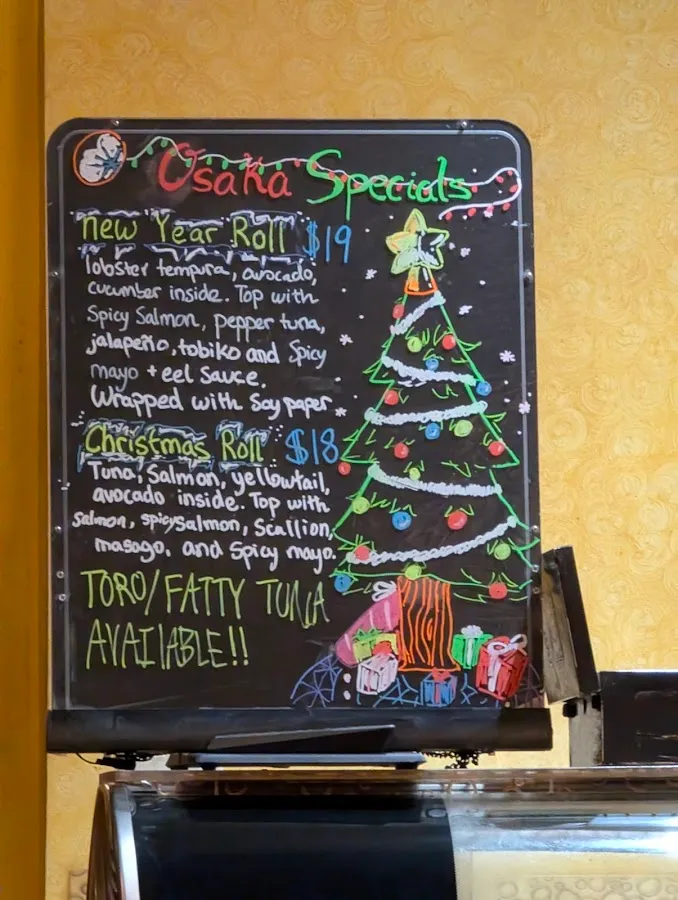 Osaka Specials
New Year Roll $19
lobster tempura, avocado,
cucumber inside. Top with
Spicy Salmon, pepper tuna,
jalapeño, tobiko and Spicy
mayo + eel Sauce.
Wrapped with Soy paper
Christmas Roll $18
Tuna, Salmon, yellowtail,
avocado inside. Top with
salmon, spicy salmon, Scallion,
masago, and Spicy mayo.
TORO/FATTY TUNA
AVAILABLE!!